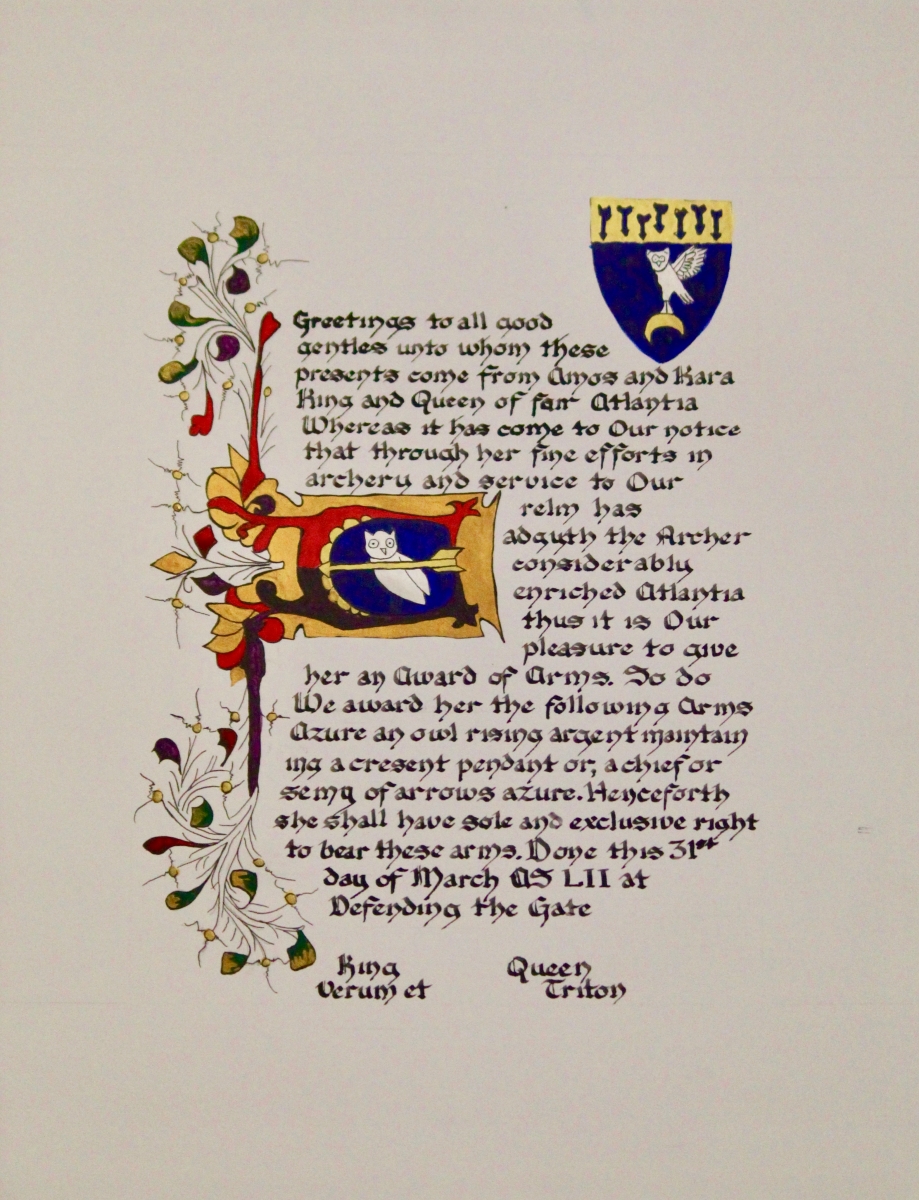 Greetings to all good
gentles unto whom these
presents come from Amos and Kara
King and Queen of fair Atlantia
Whereas it has come to Our notice
that through her fine efforts in
archery and service to Our
relm has
E
adguth the Archer
considerably
enriched Atlantia
thus it is Our
pleasure to give
her an Award of Arms. To do
We award her the following Arms
Azure an owl rising argent maintain
ing a cresent pendant or, a chief or
semy of arrows azure. Henceforth
she shall have sole and exclusive right
to bear these arms. Done this 31st
day of March AS LII at
Defending the Gate
King Queen
Verum et Triton